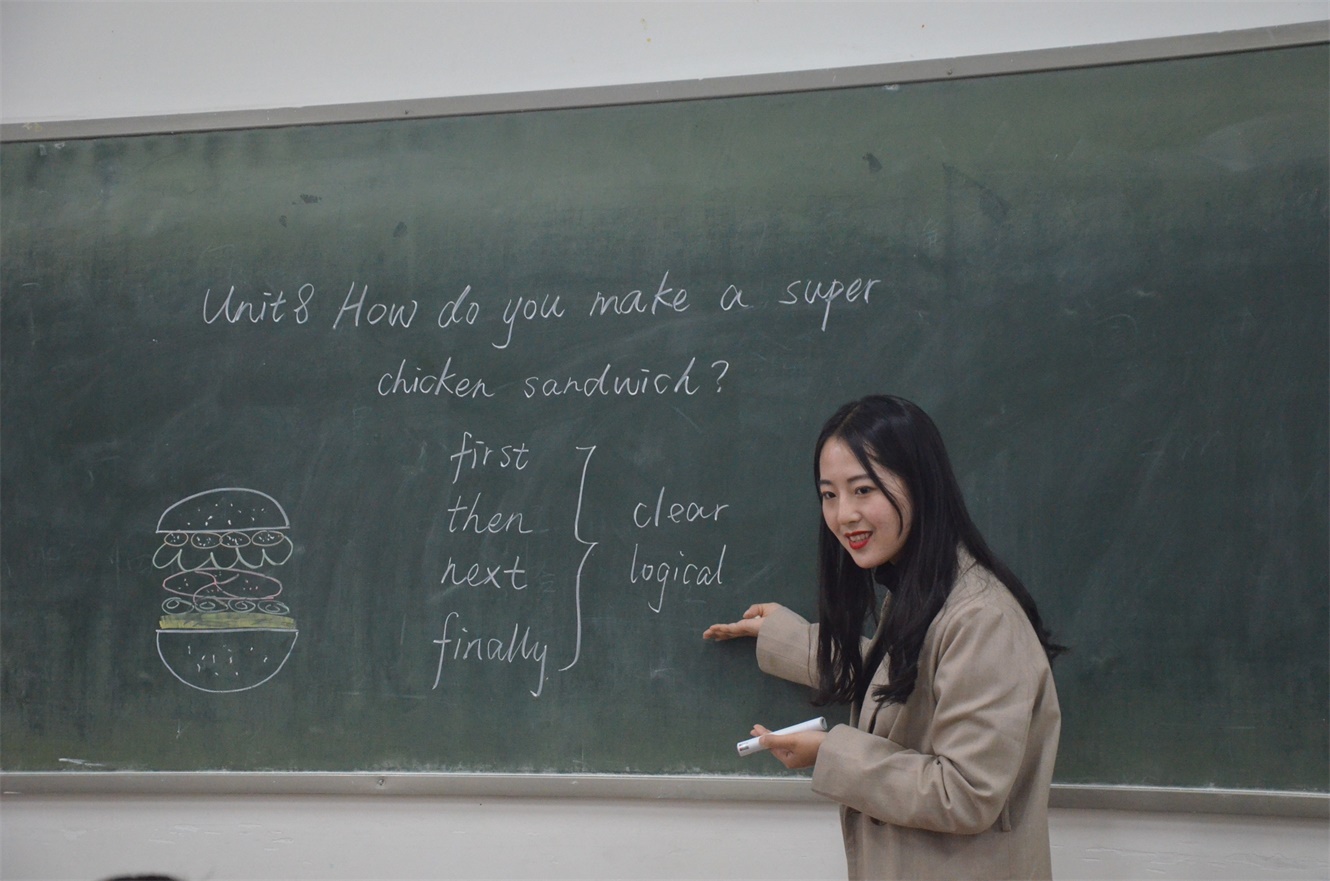 Unit8 How do you make a super
chicken sandwich?
first
then
next
finally
clear
logical